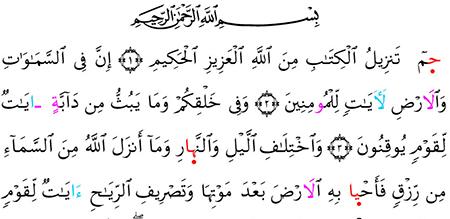 بِسْمِ اللَّهِ الرَّحْمَٰنِ الرَّحِيمِ
حمٓ تَنزِيلُ الْكِتَٰبِ مِنَ اللَّهِ الْعَزِيزِ الْحَكِيمِ ﴿١﴾ إِنَّ فِى السَّمَٰوَٰتِ
وَالَارْضِ لَأَيَٰتٖ لِّلْمُومِنِينَ ﴿٢﴾ وَفِى خَلْقِكُمْ وَمَا يَبُثُّ مِن دَآبَّةٍ ـايَٰتٌ
لِّقَوْمٖ يُوقِنُونَ ﴿٣﴾ وَاخْتِلَٰفِ الَّيْلِ وَالنَّهارِ وَمَآ أَنزَلَ اللَّهُ مِنَ السَّمَآءِ
مِن رِّزْقٖ فَأَحْيا بِهِ الَارْضَ بَعْدَ مَوْتِهَا وَتَصْرِيفِ الرِّيَٰحِ ءَايَٰتٌ لِّقَوْمٖ